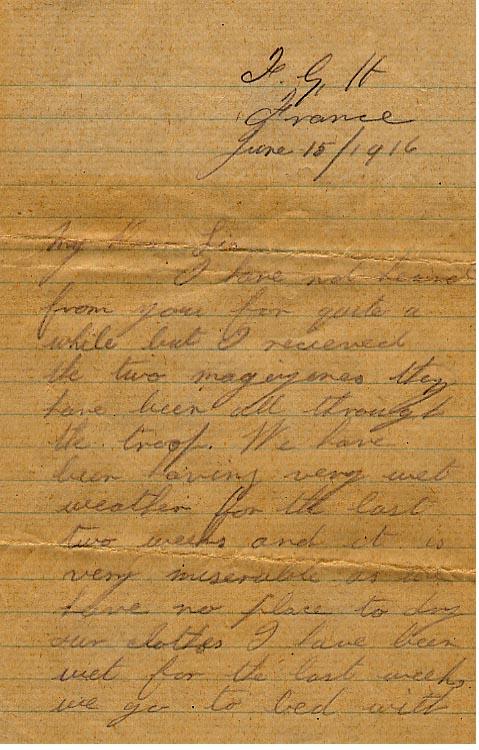 F. G. H
France
June 15/1916
My Dear
I have not heard
from you for quite a
while but I recieved
the two magezenes they
have been all through
the troop. We have
been having very wet
weather for the last
two weeks and it is
very miserable as we
have no place to dry
our clothes I have been
wet for the last week,
we go to bed with